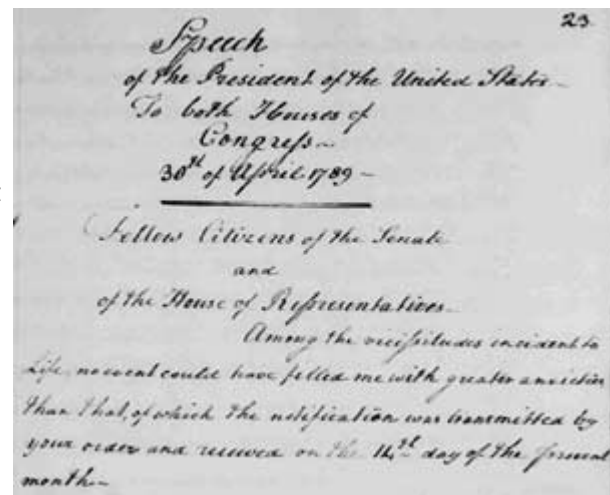 23
Speech
of the President of the United States—
To both Houses of
Congress—
30th of April 1789—
Fellow Citizens of the Senate
and
of the House of Representatives.
Among the vicissitudes incident to
Life, no event could have filled me with greater anxieties
than that, of which the notification was transmitted by
your order and received on the 14th day of the present
month—